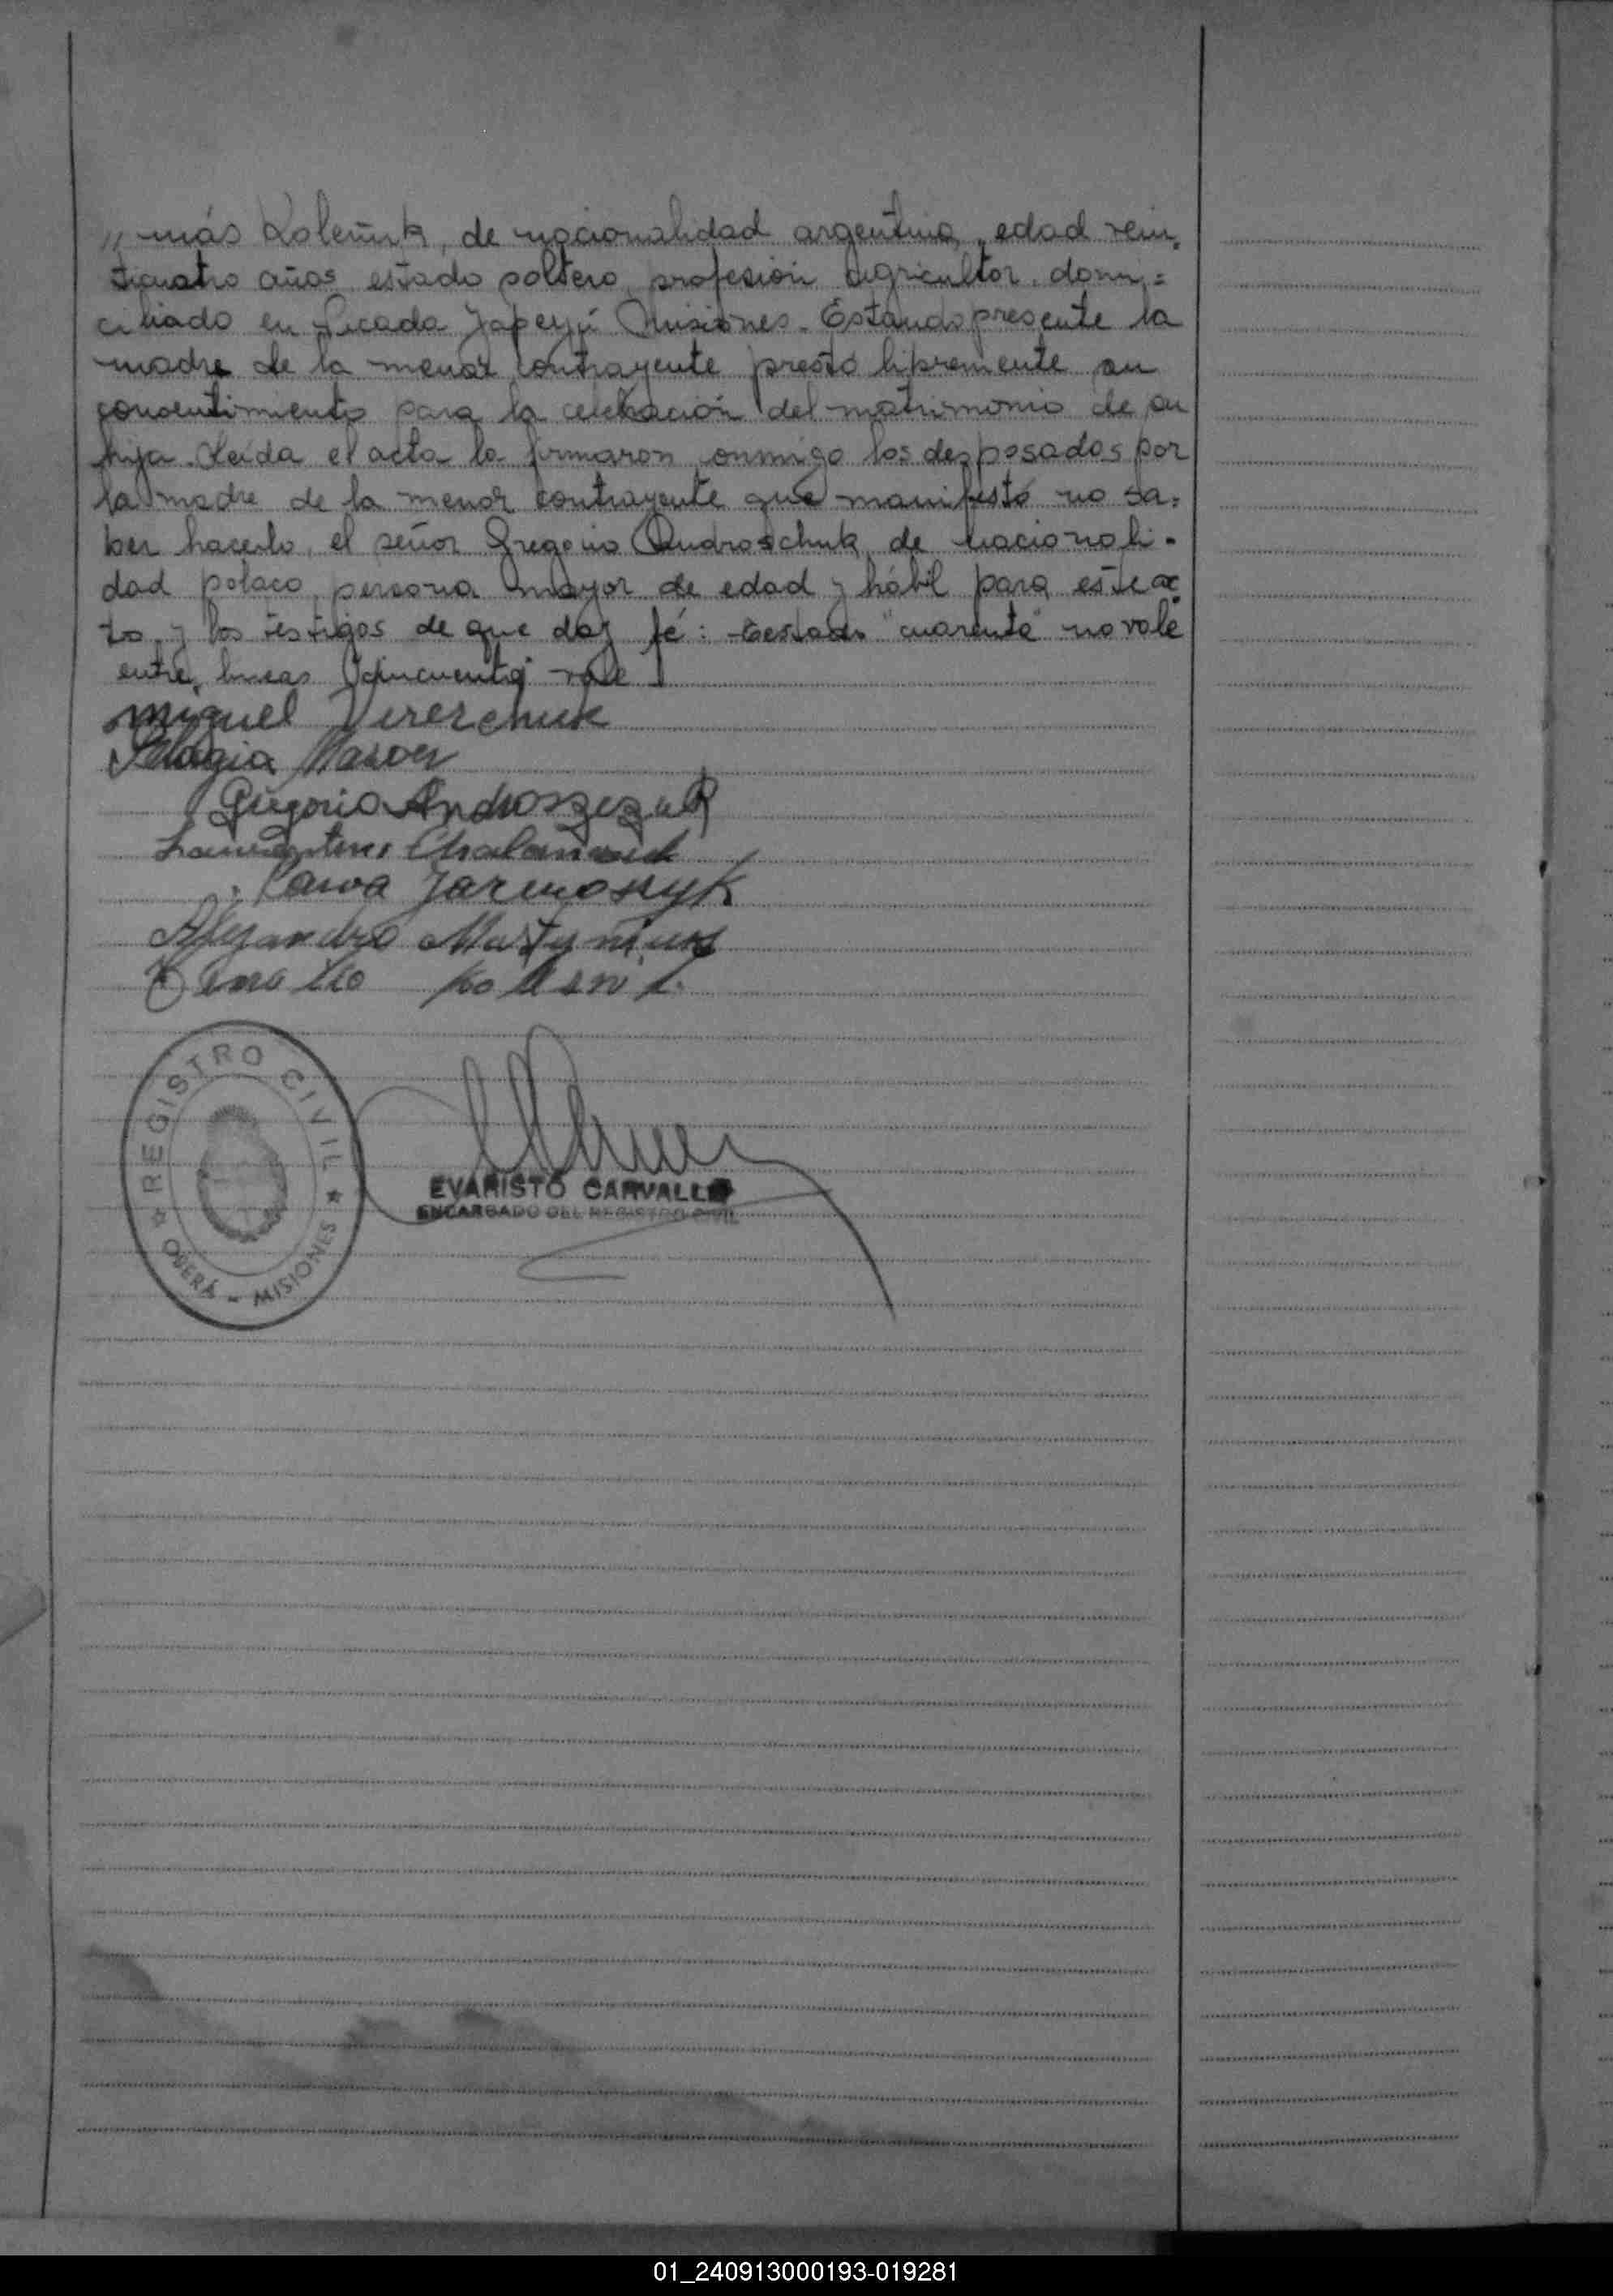 // más Koleñuk, de nacionalidad argentina, edad vein=
ticuatro años estado soltero, profesión agricultor, domi=
ciliado en Picada Yapeyú Misiones. Estando presente la
madre de la menor contrayente prestó lipremente su
consentimiento para la celebración del matrimonio de su
hija. Leída el acta la firmaron onmigo los desposados por
la madre de la menor contrayente que manifestó no sa=
ber hacerlo, el señor Gregorio Androschuk de nacionali-
dad polaco, persona mayor de edad y hábil para este ac
to, y los testigos de que doy fé: Testado "cuarenta" no vale
entre lineas "cincuenta" vale
Miguel Vererchuk
Pelagia
Gregorio Androszczuk
Jarmoszyk
Alejandro Martyniuk
REGISTRO CIVIL
OBERÁ - MISIONES
EVARISTO CARVALLO
ENCARGADO DEL REGISTRO CIVIL
01_240913000193-019281